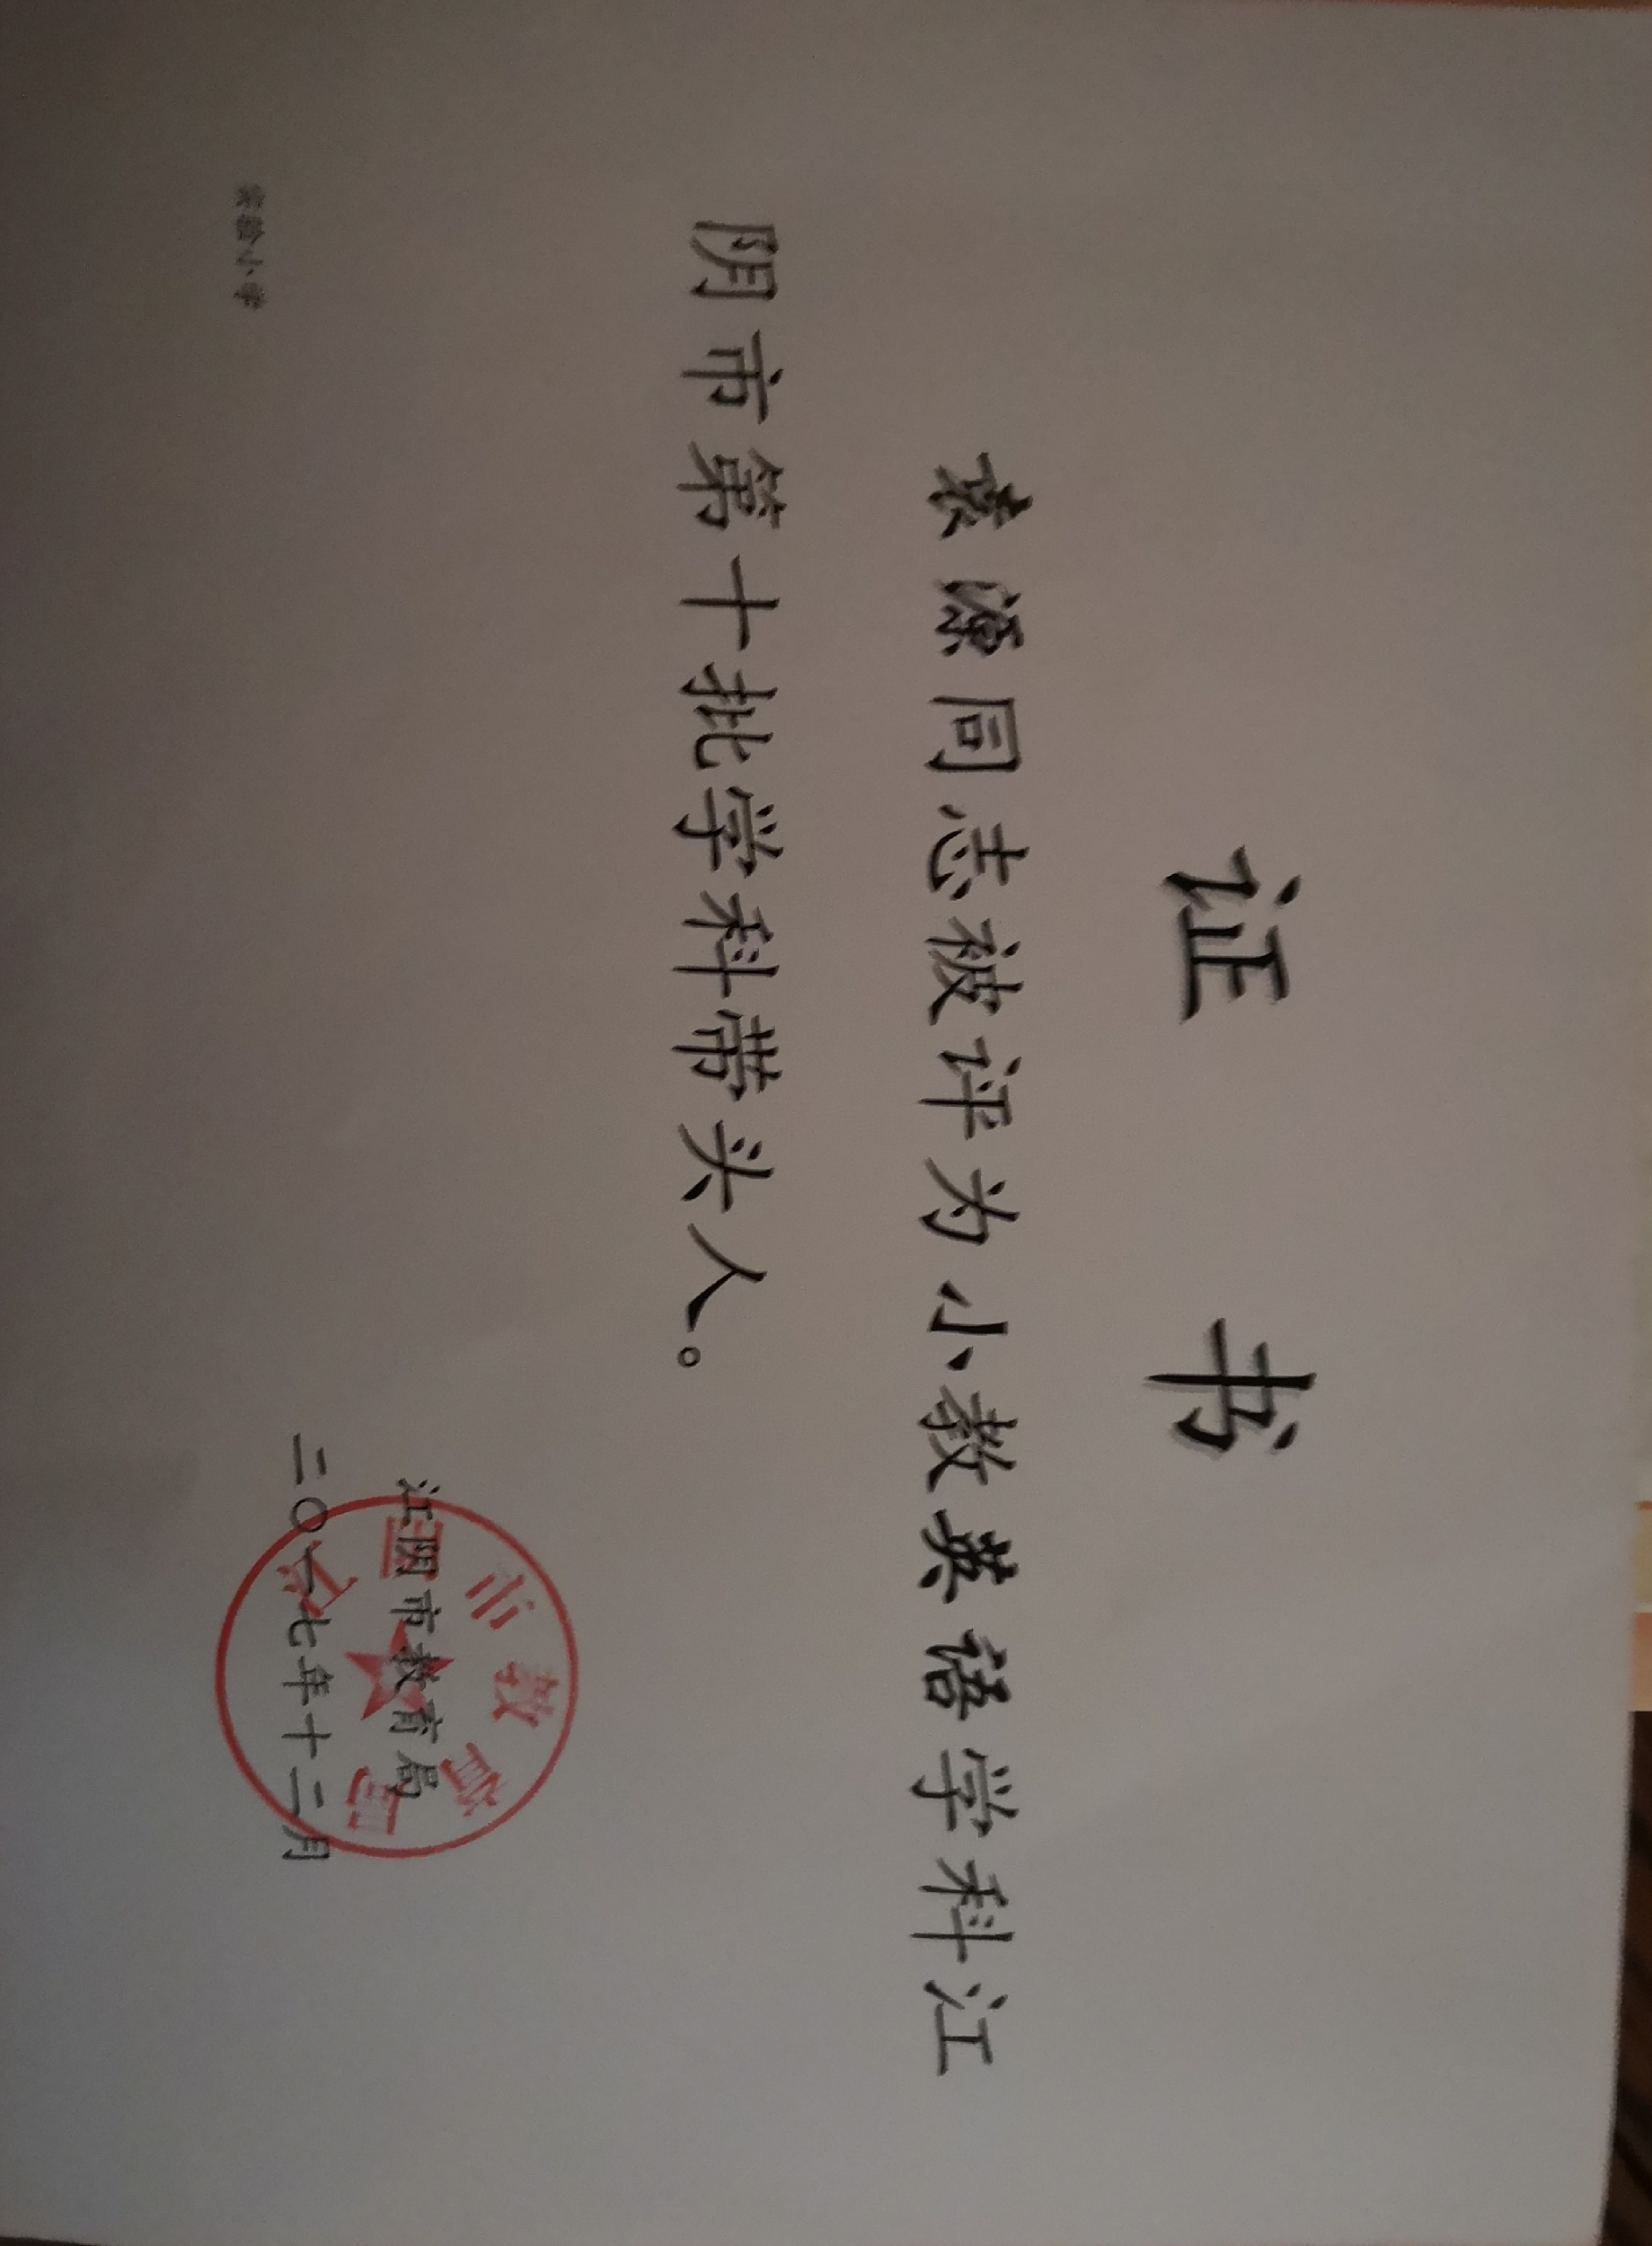 证 书
袁源同志被评为小教英语学科江
阴市第十批学科带头人。
江阴市教育局
江阴市教育局
二〇一七年十二月
实验小学